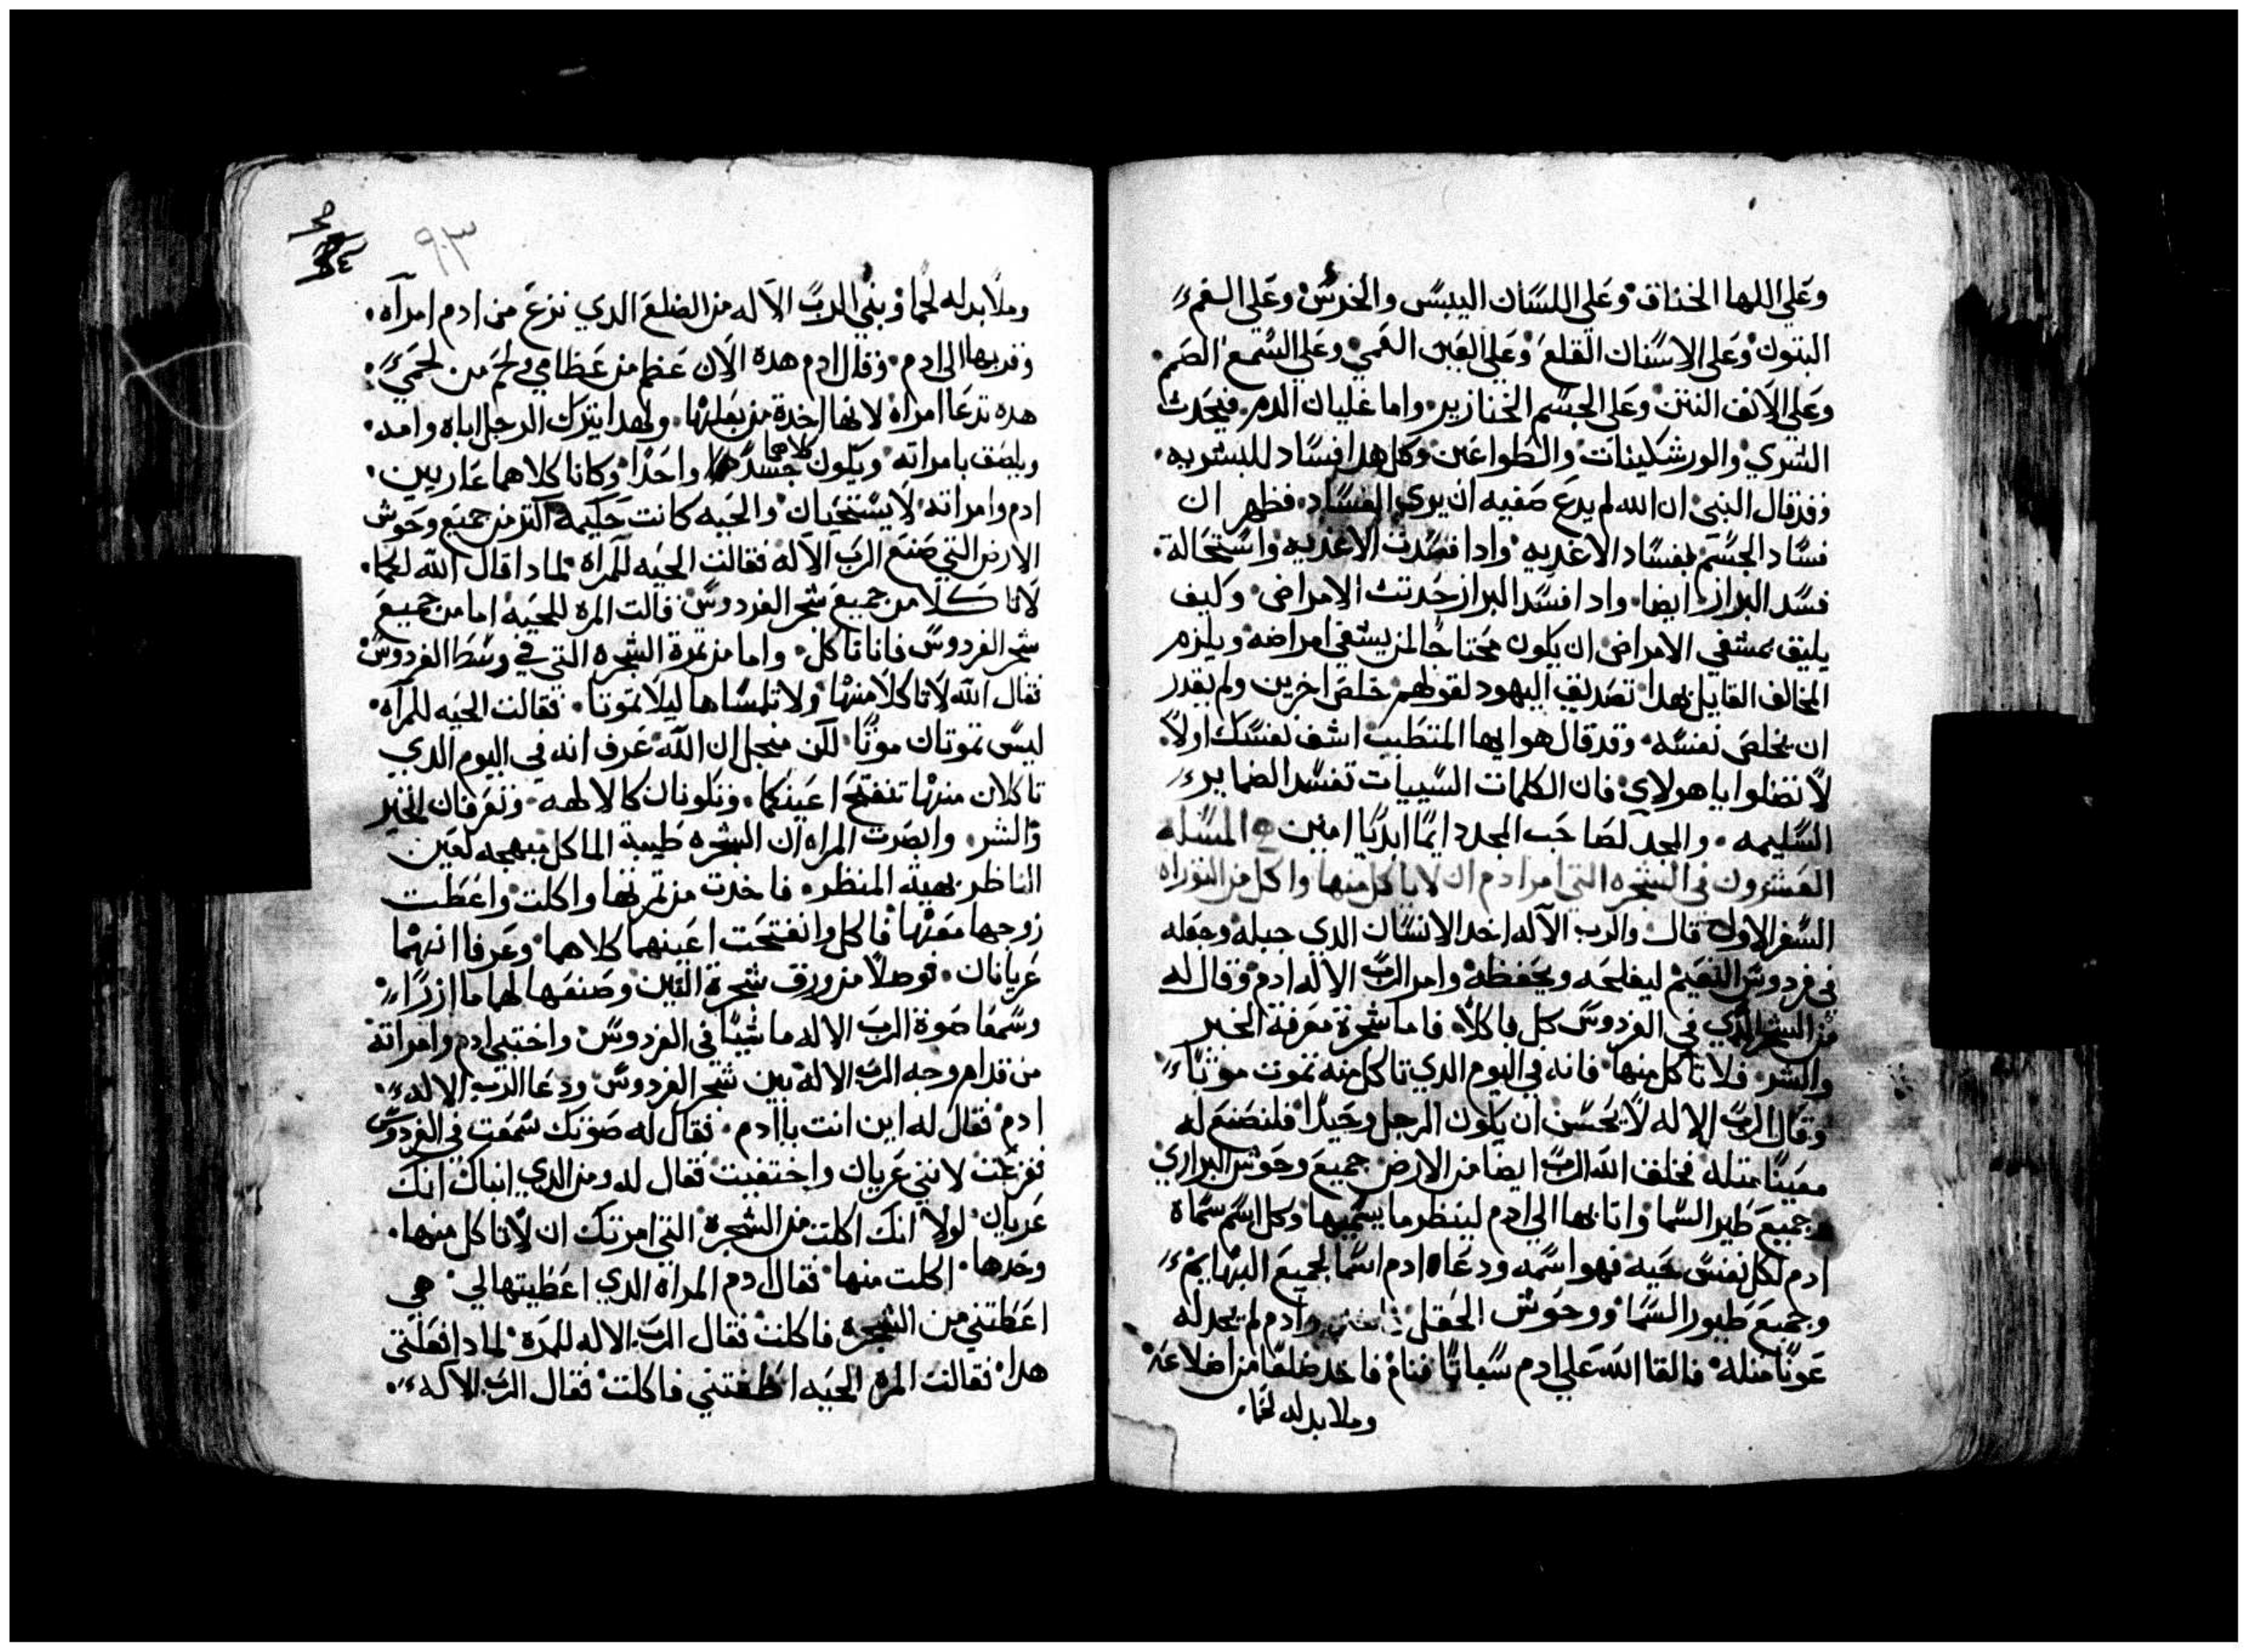 وعلي اللها الخناق وعلي اللسان اليبس والخرس وعلي الفم
البتوك وعلي الاسنان القلع وعلي العين العمي وعلي السمع الصمم
وعلي الانف النتن وعلي الجسم الخنازير واما غليان الدم فيحدت
الشري والورشكينات والطواعين وكل هدا فساد للبشريه
وقد قال النبي ان الله لم يدع صفيه ان يري الفساد فظهر ان
فساد الجسم بفساد الاغديه وادا فسدت الاغديه واستحالة
فسد البراز ايضا وادا فسد البراز حدتت الامراض وكيف
يليق بمشفي الامراض ان يكون محتاجا لمن يشفي امراضه ويلزم
المخالف القايل بهدا تصديق اليهود لقولهم خلص اخرين ولم يقدر
ان يخلص نفسه وقد قال هو ايها المتطبب اشف نفسك اولا
لا تضلوا يا هولاي فان الكلمات السييات تفسد الضماير
السليمه والمجد لصاحب المجد دايما ابديا امين المسله
العشرون في الشجره التي امر ادم ان لا ياكل منها واكل من التوراه
السفر الاول قال والرب الاله اخد الانسان الدي جبله وجعله
في فردوس النعيم ليفلحه ويحفظه وامر الرب الاله ادم وقال له
من الشجر الدي في الفردوس كل ماكلا فاما شجرة معرفة الخير
والشر فلا تاكل منها فانه في اليوم الدي تاكل منه تموت موتا
وقال الرب الاله لا يحسن ان يكون الرجل وحيدا فلنصنع له
معينا متله فخلق الله الرب ايضا من الارض جميع وحوش البراري
وجميع طير السما واتا بها الي ادم لينظر ما يسميها وكل اسم سماه
ادم لكل نفس حيه فهو اسمه ودعاه ادم اسما لجميع البهايم
وجميع طيور السما ووحوش الحقل وادم لم يجد له
عونا متله فالقا الله علي ادم سباتا فنام فاخد ضلعا من اضلاعه
وملا بدله لحما
٩٣
وملا بدله لحما وبني الرب الاله من الضلع الدي نزع من ادم امراه
وقدبها الي ادم وقال ادم هده الان عظم من عظامي ولحم من لحمي
هده تدعا امراه لانها اخدة من بعلها ولهدا يترك الرجل اباه وامه
ويلصق بامراته ويكون كلاهما جسدا واحدا وكانا كلاهما عاريين
ادم وامراته لا يستحيان والحيه كانت حكيمة اكتر من جميع وحوش
الارض التي صنع الرب الاله فقالت الحيه للمراه لمادا قال الله لكما
لا تاكلا من جميع شجر الفردوس قالت المره للحيه اما من جميع
شجر الفردوس فانا ناكل واما من تمرة الشجره التي في وسط الفردوس
فقال الله لا تاكلا منها ولا تلمساها ليلا تموتا فقالت الحيه للمراه
ليس تموتان موتا لكن منجل ان الله عرف انه في اليوم الدي
تاكلان منها تنفتح اعينكما وتكونان كالالهه وتعرفان الخير
والشر وابصرت المراه ان الشجره طيبة الماكل مبهجه لعين
الناظر بهية المنظر فاخدت من تمرتها واكلت واعطت
زوجها معها فاكل وانفتحت اعينهما كلاهما وعرفا انهما
عريانان فوصلا من ورق شجرة التين وصنعها لهما مازرا
وسمعا صوة الرب الاله ماشيا في الفردوس واختبي ادم وامراته
من قدام وجه الرب الاله بين شجر الفردوس ودعا الرب الاله
ادم فقال له اين انت يا ادم فقال له صوتك سمعت في الفردوس
ففزعت لانني عريان واختفيت فقال له ومن الدي انباك انك
عريان لولا انك اكلت من الشجرة التي امرتك ان لا تاكل منها
وحدها اكلت منها فقال ادم المراه الدي اعطيتها لي هي
اعطتني من الشجره فاكلت فقال الرب الاله للمرة لمادا فعلتي
هدا فقالت المره الحيه اطغتني فاكلت فقال الرب الاله